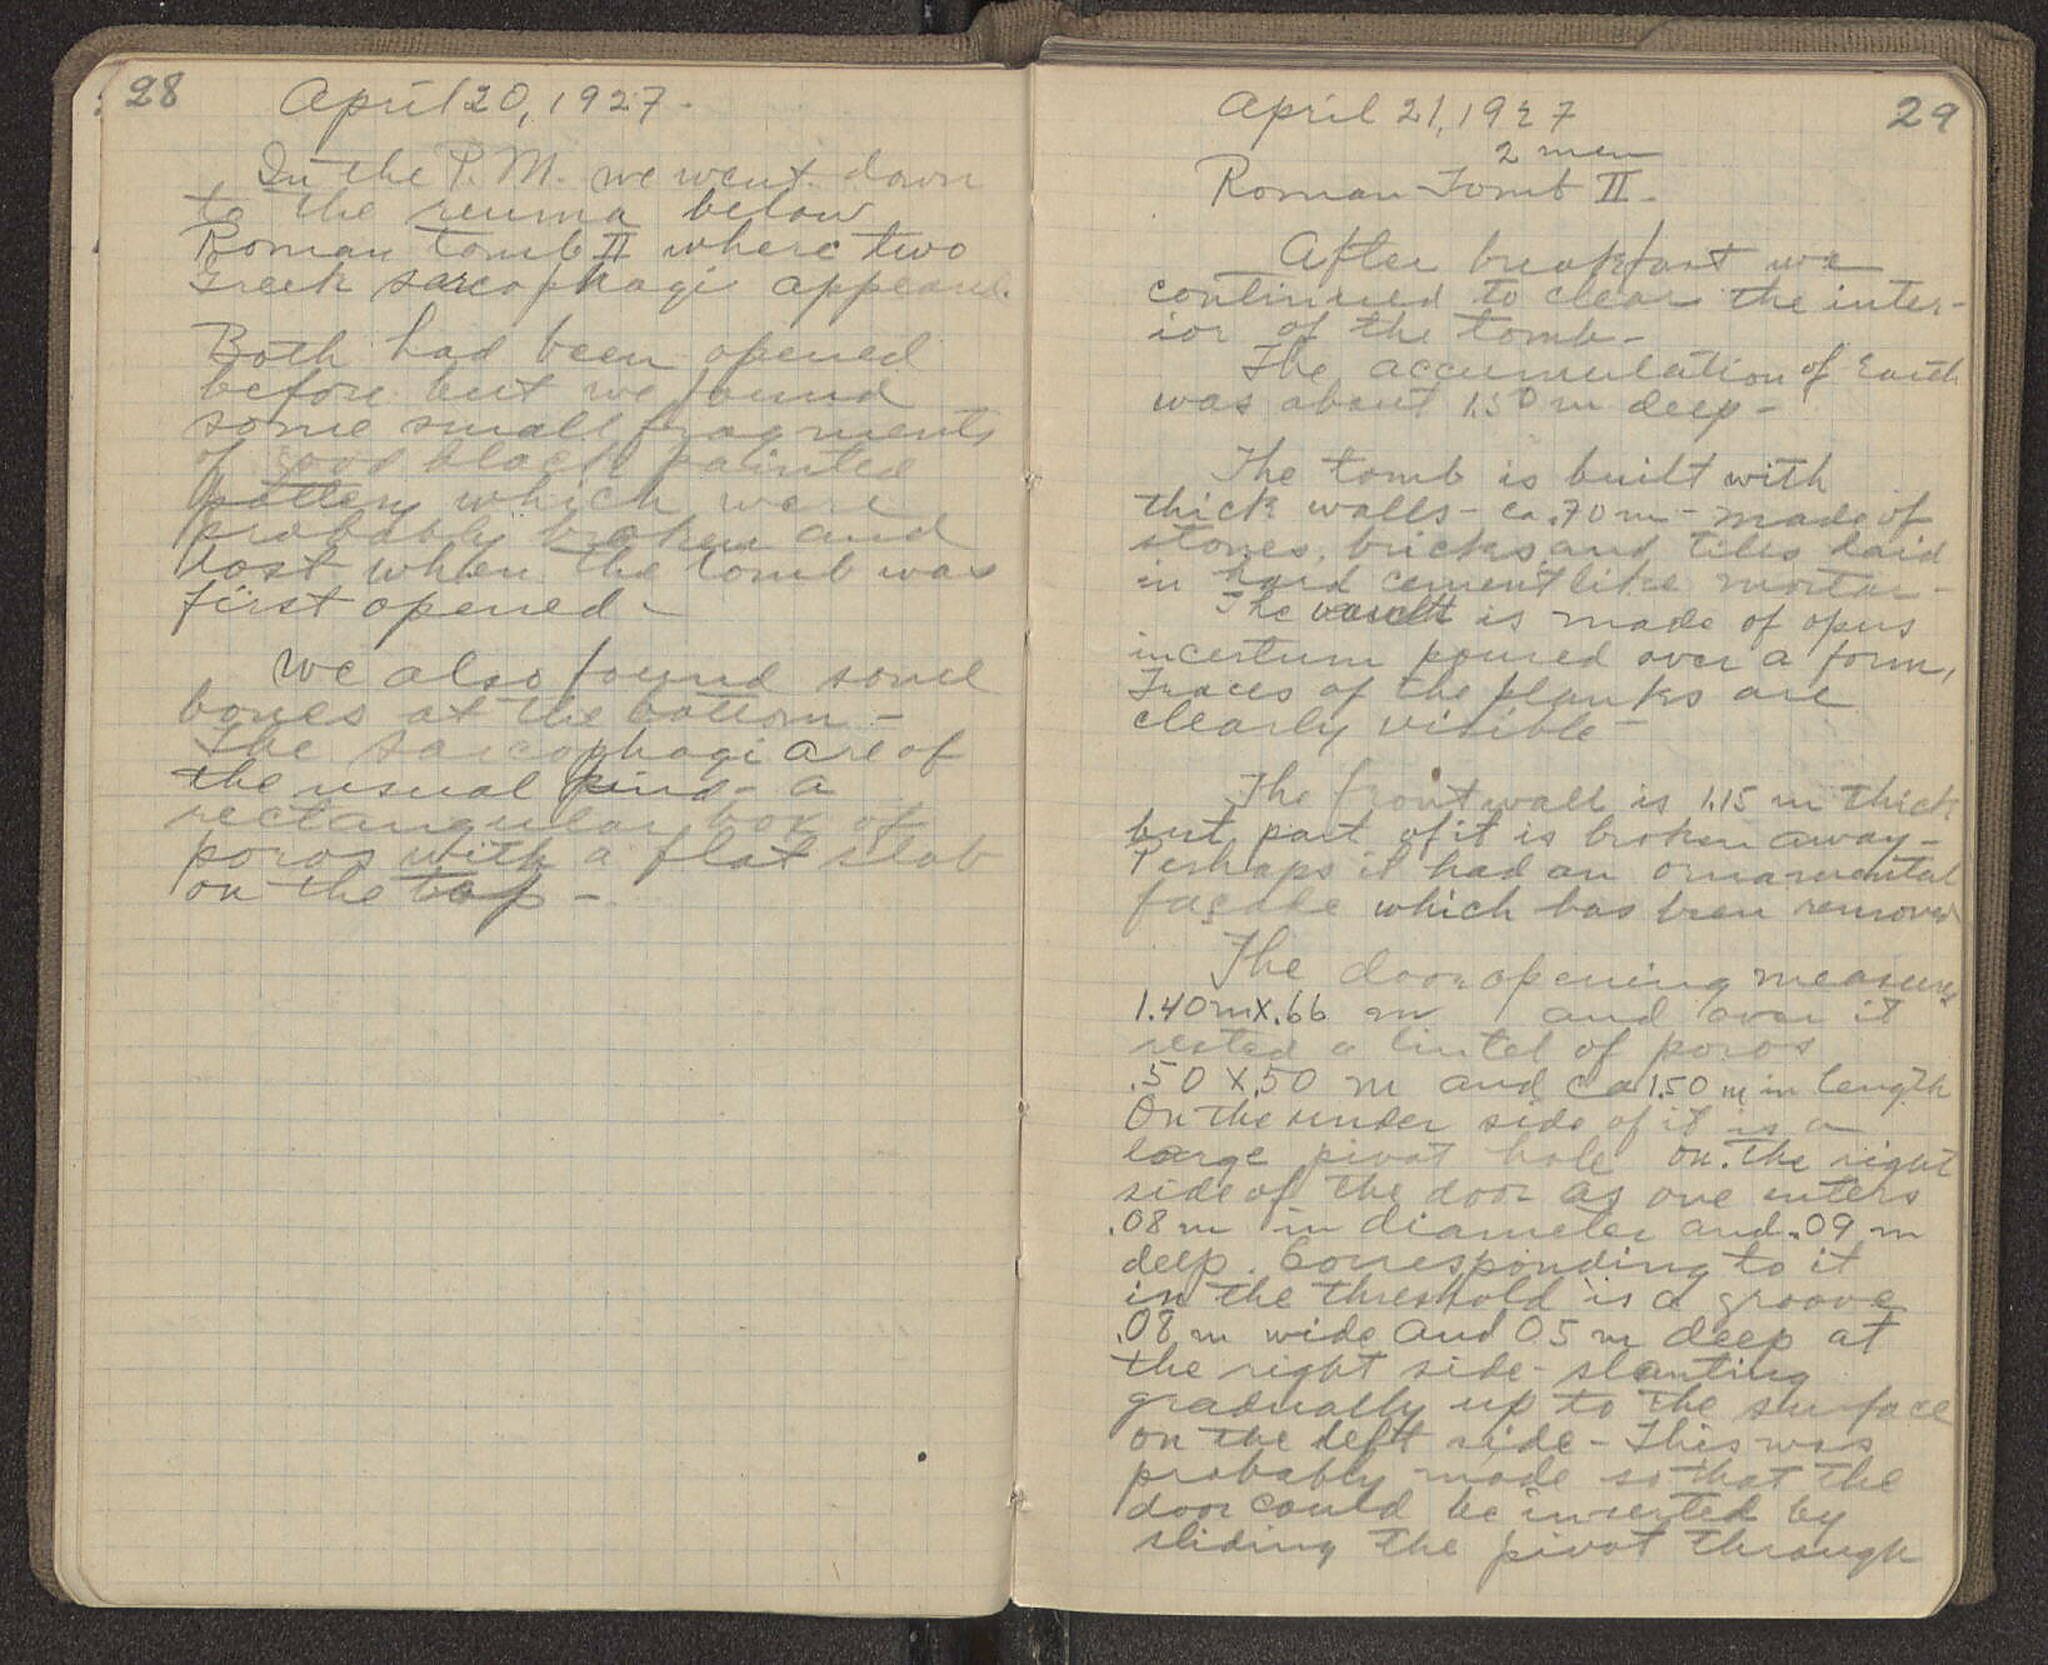 28
April 20, 1927.
In the P.M. we went down
to the reuma below
Roman tomb II where two
Greek sarcophagi appeared.
Both had been opened
before but we found
some small fragments
of good black painted
pottery which were
probably broken and
lost when the tomb was
first opened -
We also found some
bones at the bottom -
The sarcophagi are of
the usual kind - a
rectangular box of
poros with a flat slab
on the top -
29
April 21, 1927
2 men
Roman Tomb II -
After breakfast we
continued to clear the inter-
ior of the tomb -
The accumulation of Earth
was about 1.50 m deep -
The tomb is built with
thick walls - ca .70 m - made of
stones, bricks and tiles laid
in hard cementlike mortar -
The vault is made of opus
incertum poured over a form,
Traces of the planks are
clearly visible -
The front wall is 1.15 m thick
but part of it is broken away -
Perhaps it had an ornamental
façade which has been removed
The door opening measures
1.40 m x .66 m and over it
rested a lintel of poros
.50 x .50 m and ca 1.50 m in length
On the under side of it is a
large pivot hole on the right
side of the door as one enters
.08 m in diameter and .09 m
deep. Corresponding to it
in the threshold is a groove
.08 m wide and 05 m deep at
the right side - slanting
gradually up to the surface
on the left side - This was
probably made so that the
door could be inserted by
sliding the pivot through